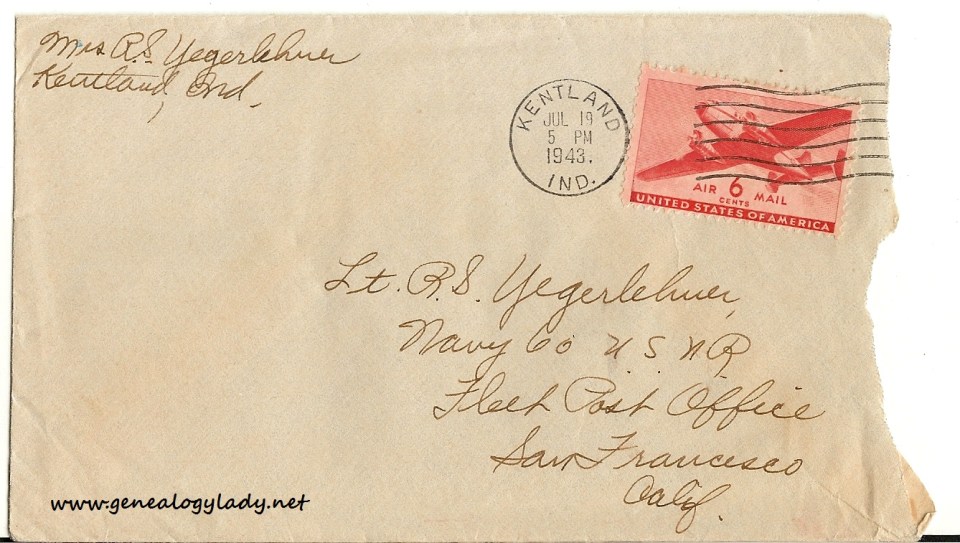 Mrs R.S. Yegerlehner
Kentland, Ind.
KENTLAND
JUL 19
5 PM
1943.
IND.
AIR 6 MAIL
CENTS
UNITED STATES OF AMERICA
Lt. R.S. Yegerlehner,
Navy 60 U.S.N.R
Fleet Post Office
San Francisco
Calif.
www.genealogylady.net